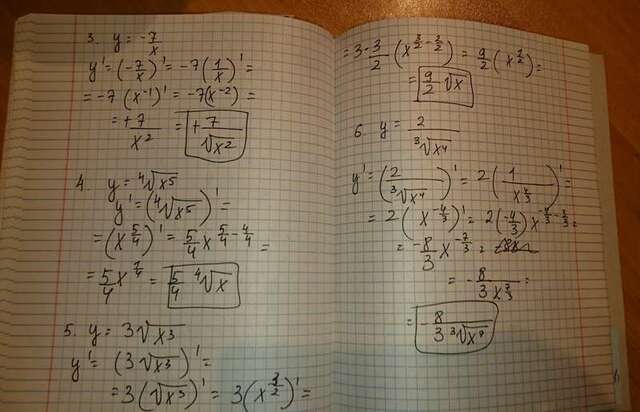 3. y = -7/x
y' = (-7/x)' = -7(1/x)' =
= -7(x⁻¹)' = -7(x⁻²) =
= +7/x² = +7/√x²
4. y = ⁴√x⁵
y' = (⁴√x⁵)' =
= (x^(5/4))' = 5/4 x^(5/4 - 4/4) =
= 5/4 x^(1/4) = 5/4 ⁴√x
5. y = 3√x³
y' = (3√x³)' =
= 3(√x³)' = 3(x^(3/2))' =
= 3·3/2 (x^(3/2 - 2/2)) = 9/2 (x^(1/2)) =
= 9/2 √x
6. y = 2/³√x⁴
y' = (2/³√x⁴)' = 2(1/x^(4/3))' =
= 2(x^(-4/3))' = 2(-4/3)x^(-4/3 - 3/3) =
= -8/3 x^(-7/3) =
= -8/3x^(7/3) =
= -8/3 ³√x⁷